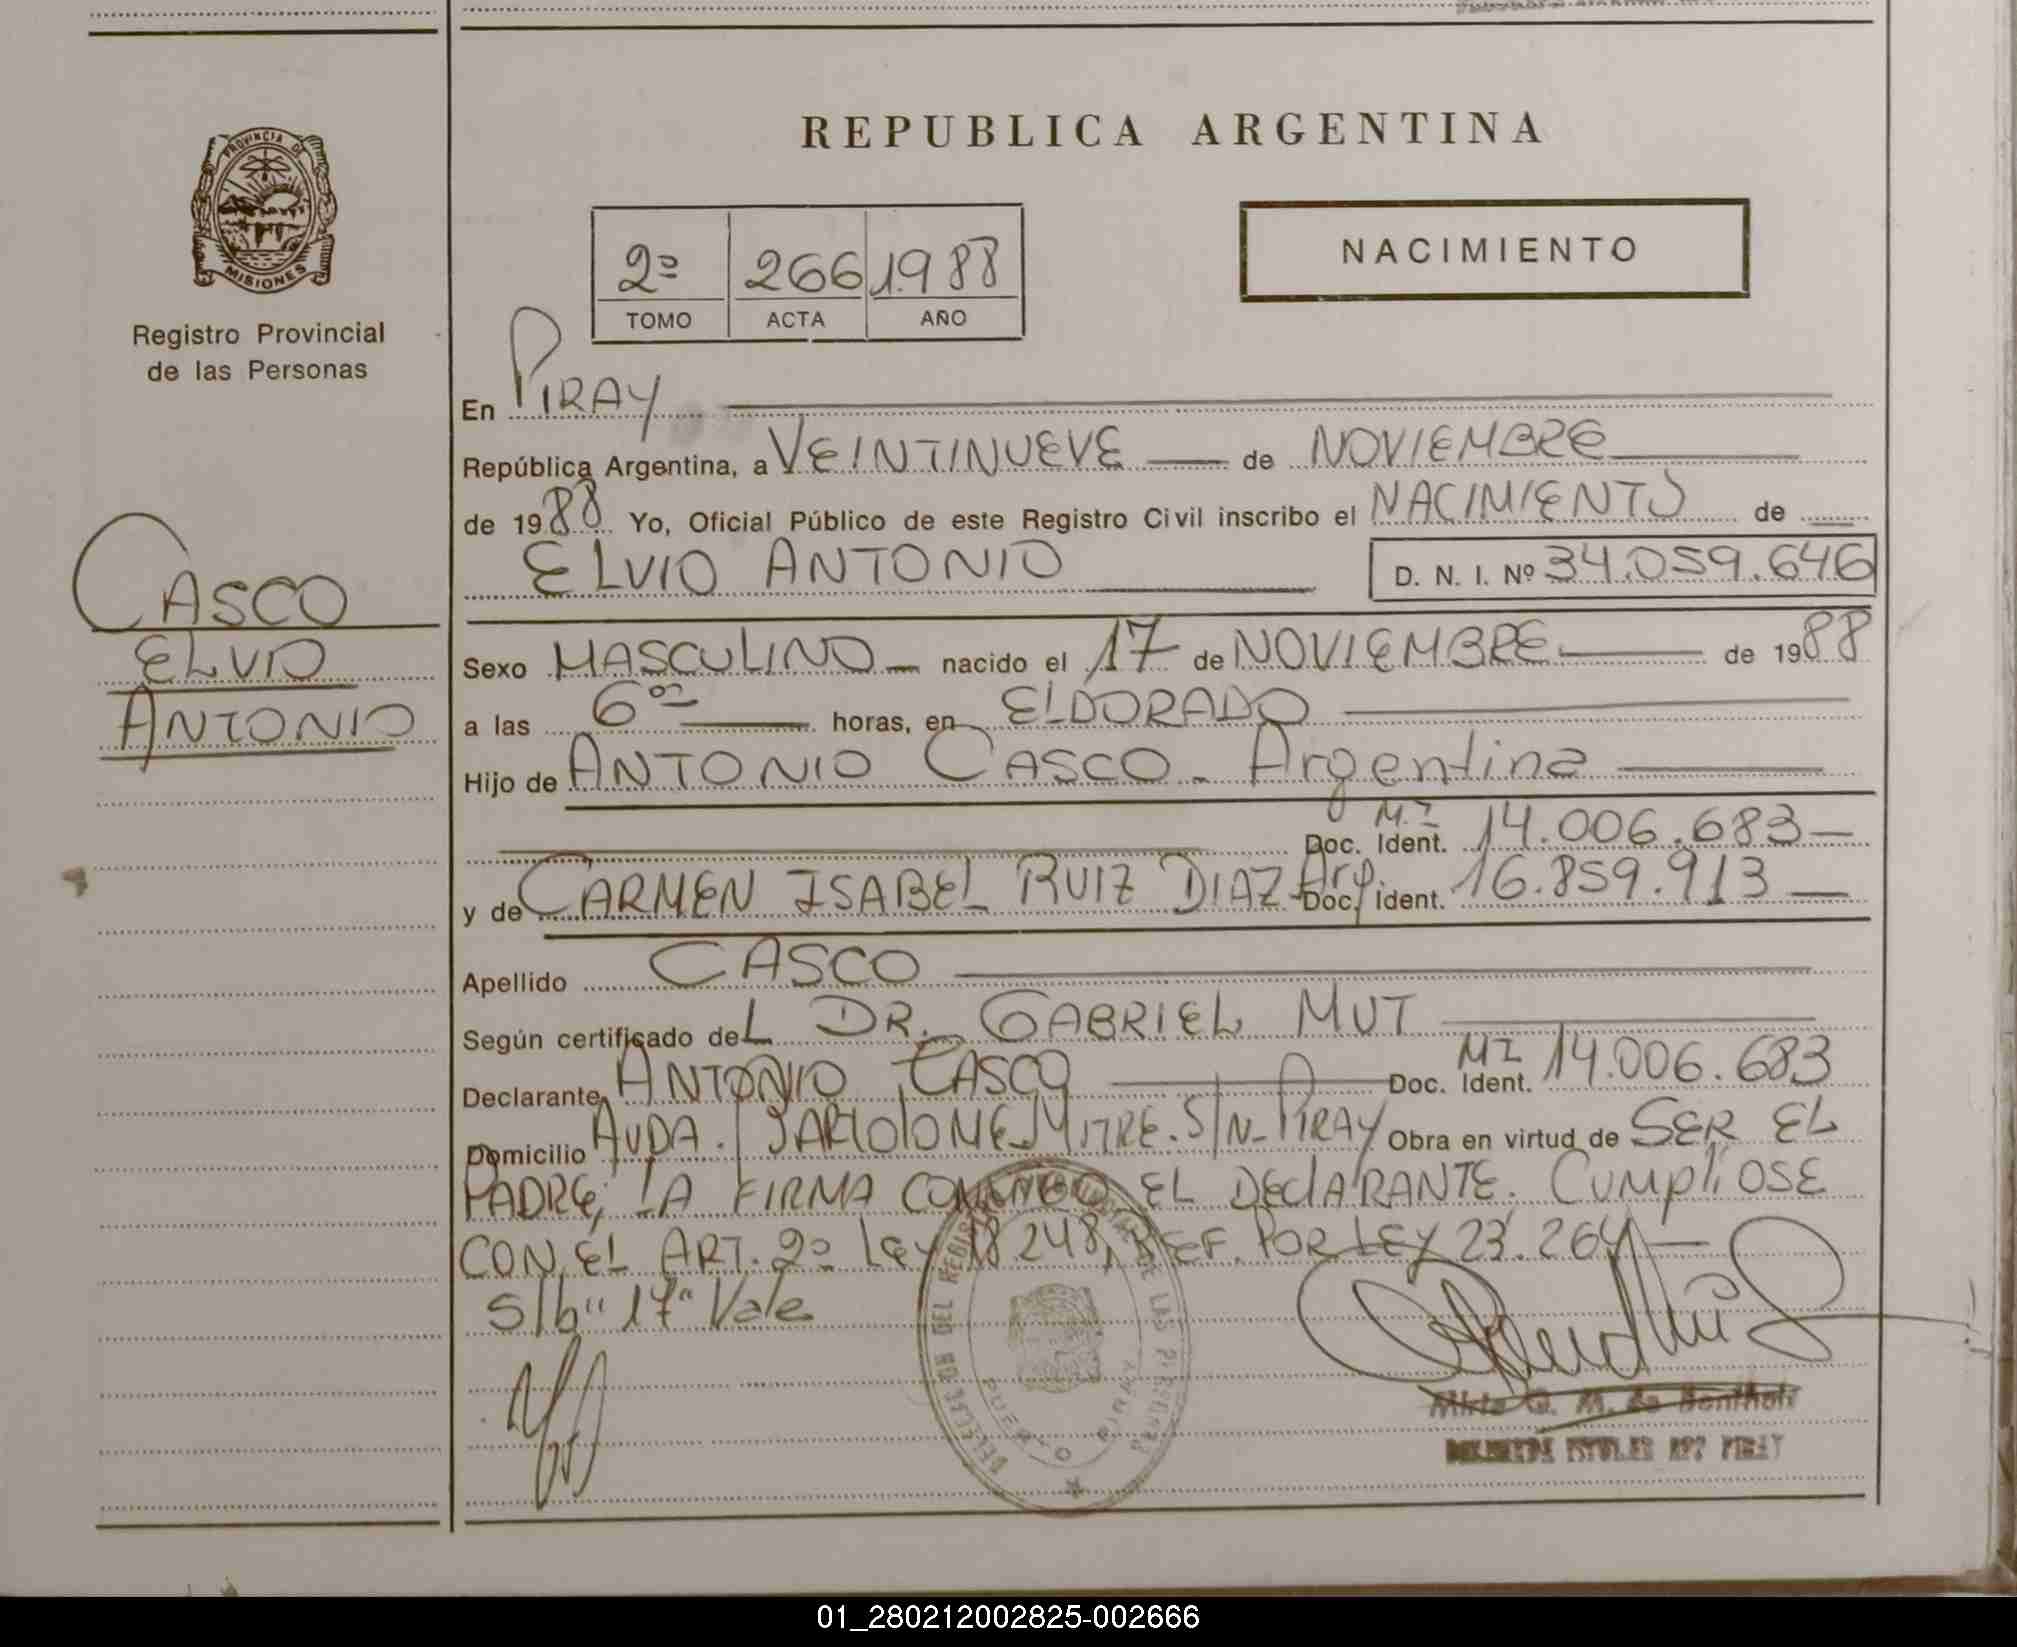 PROVINCIA DE
MISIONES
Registro Provincial
de las Personas
CASCO
ELVIO
ANTONIO
REPUBLICA ARGENTINA
NACIMIENTO
2º 266 1.988
TOMO ACTA AÑO
En PIRAY
República Argentina, a VEINTINUEVE de NOVIEMBRE
de 1988 Yo, Oficial Público de este Registro Civil inscribo el NACIMIENTO de
ELVIO ANTONIO D. N. I. Nº 34.059.646
Sexo MASCULINO nacido el 17 de NOVIEMBRE de 1988
a las 6ºº horas, en ELDORADO
Hijo de ANTONIO CASCO - Argentina
Doc. Ident. M.I 14.006.683
y de CARMEN ISABEL RUIZ DIAZ - Arg. Doc. Ident. 16.859.913
Apellido CASCO
Según certificado deL DR. GABRIEL MUT
Declarante ANTONIO CASCO Doc. Ident. MI 14.006.683
Domicilio AVDA. BARTOLOME MITRE. S/N - PIRAY Obra en virtud de SER EL
PADRE, LA FIRMA CONMIGO EL DECLARANTE. CUMPLIOSE
CON EL ART. 2º LEY 18.248, REF. POR LEY 23.264
S/b "17" Vale
DEL REGISTRO DE LAS PERSONAS
PUERTO PIRAY
Mirta G. M. de
PIRAY
01_280212002825-002666